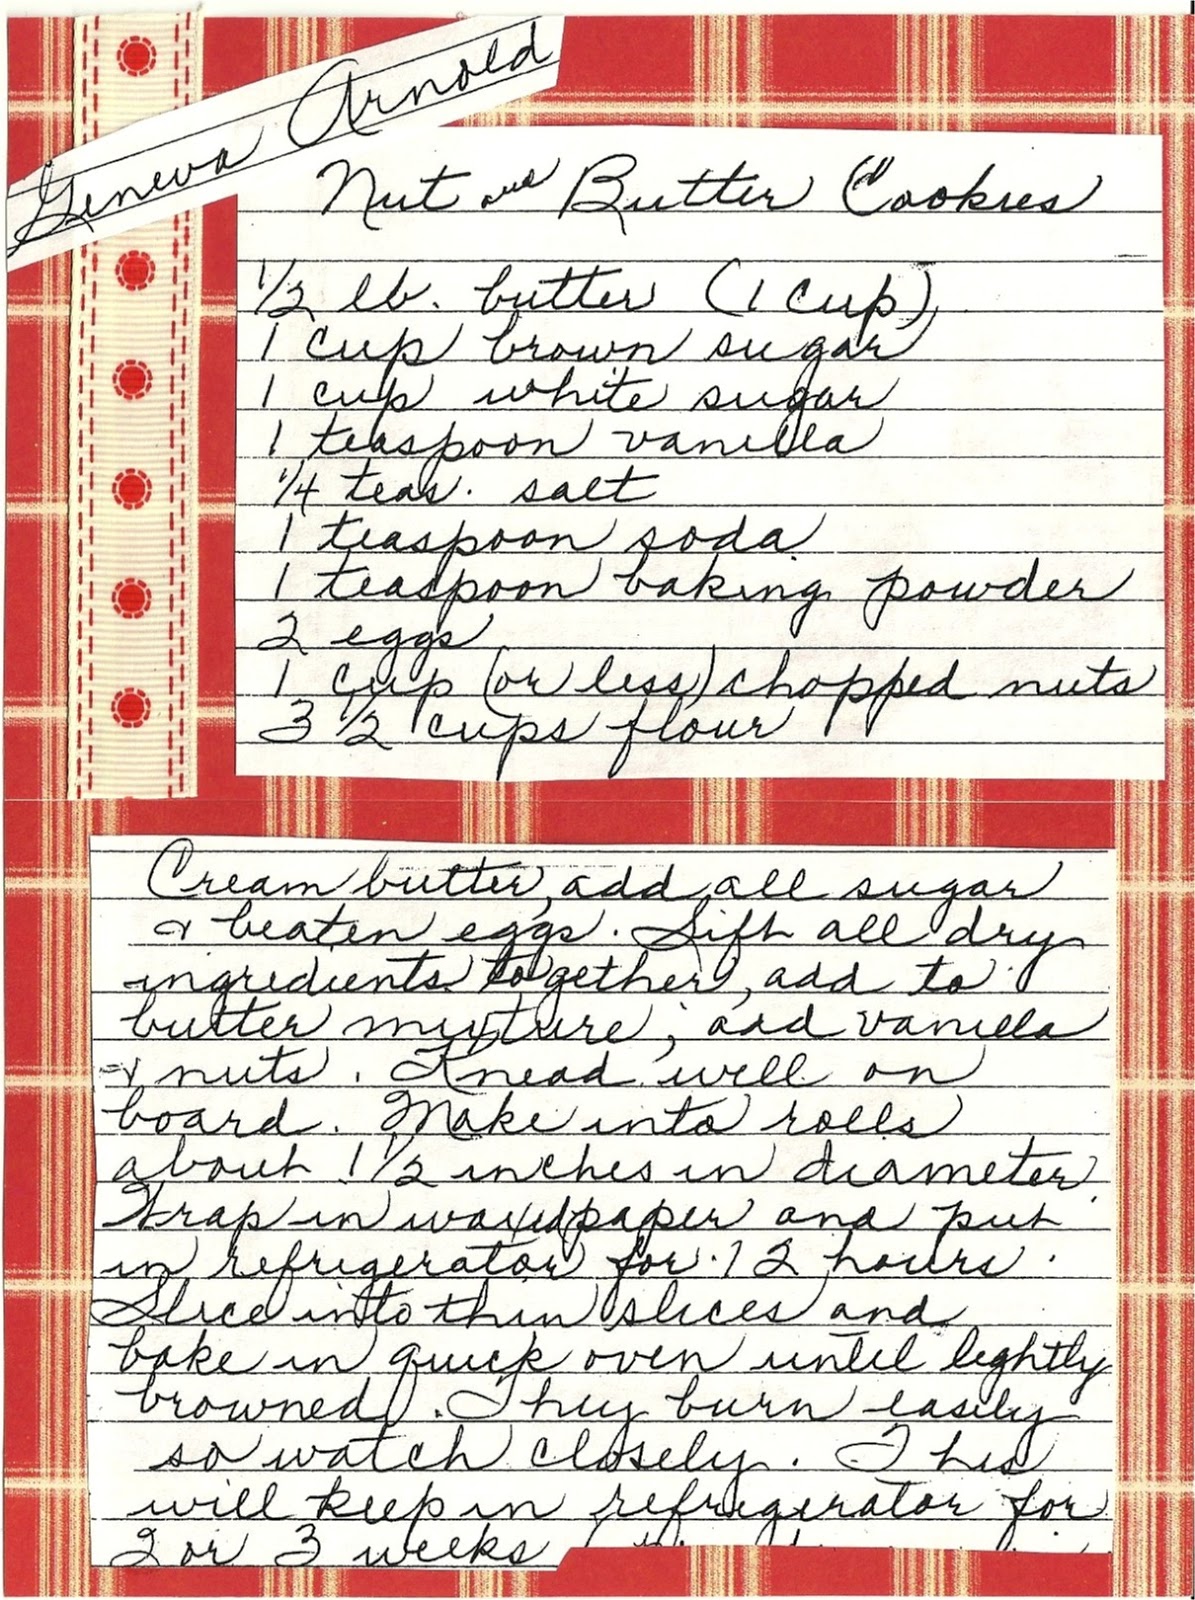 Geneva Arnold
Nut and Butter Cookies
1/2 lb. butter (1 cup)
1 cup brown sugar
1 cup white sugar
1 teaspoon vanilla
1/4 teas. salt
1 teaspoon soda
1 teaspoon baking powder
2 eggs
1 cup (or less) chopped nuts
3 1/2 cups flour
Cream butter, add all sugar
& beaten eggs. Sift all dry
ingredients together, add to
butter mixture; add vanilla
& nuts. Knead well on
board. Make into rolls
about 1 1/2 inches in diameter.
Wrap in waxed paper and put
in refrigerator for 12 hours.
Slice into thin slices and
bake in quick oven until lightly
browned. They burn easily
so watch closely. This
will keep in refrigerator for
2 or 3 weeks